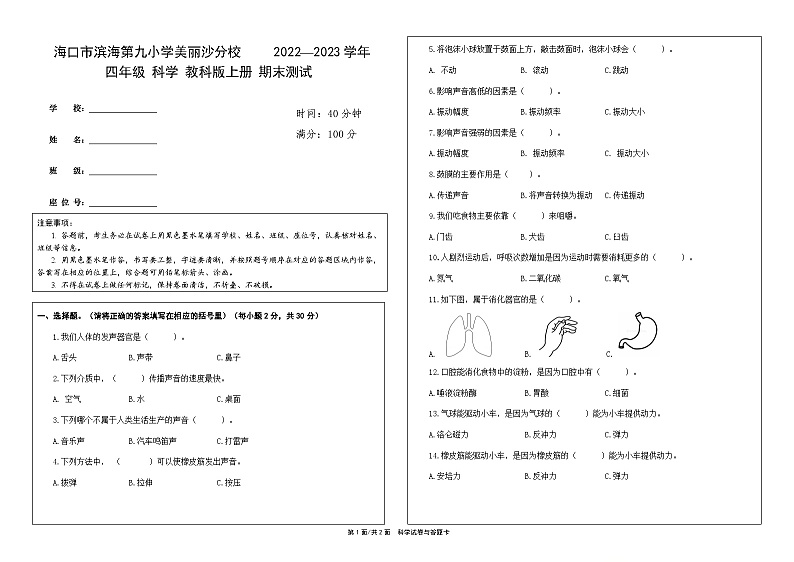 海口市滨海第九小学美丽沙分校 2022—2023 学年
四年级 科学 教科版上册 期末测试
学 校：
姓 名：
班 级：
座 位 号：
时间：40 分钟
满分：100 分
注意事项：
1. 答题前，考生务必在试卷上用黑色墨水笔填写学校、姓名、班级、座位号，认真核对姓名、
班级等信息。
2. 用黑色墨水笔作答，书写要工整，字迹要清晰，并按照题号顺序在对应的答题区域内作答，
答案写在相应的位置上，综合题可用铅笔标箭头、涂画。
3. 不得在试卷上做任何标记，保持卷面清洁，不折叠、不破损。
一、选择题。（请将正确的答案填写在相应的括号里）（每小题 2 分，共 30 分）
1.我们人体的发声器官是（ ）。
A.舌头 B.声带 C.鼻子
2.下列介质中，（ ）传播声音的速度最快。
A. 空气 B.水 C.桌面
3.下列哪个不属于人类生活生产的声音（ ）。
A.音乐声 B.汽车鸣笛声 C.打雷声
4.下列方法中， （ ）可以使橡皮筋发出声音。
A.拨弹 B.拉伸 C.按压
5.将泡沫小球放置于鼓面上方，敲击鼓面时，泡沫小球会（ ）。
A. 不动 B. 滚动 C.跳动
6.影响声音高低的因素是（ ）。
A.振动幅度 B.振动频率 C.振动大小
7.影响声音强弱的因素是（ ）。
A.振动幅度 B. 振动频率 C. 振动大小
8.鼓膜的主要作用是（ ）。
A.传递声音 B.将声音转换为振动 C.传递振动
9.我们吃食物主要依靠（ ）来咀嚼。
A.门齿 B.犬齿 C.臼齿
10.人剧烈运动后，呼吸次数增加是因为运动时需要消耗更多的（ ）。
A.氮气 B.二氧化碳 C.氧气
11.如下图，属于消化器官的是（ ）。
A. B. C.
12.口腔能消化食物中的淀粉，是因为口腔中有（ ）。
A.唾液淀粉酶 B.胃酸 C.细菌
13.气球能驱动小车，是因为气球的（ ）能为小车提供动力。
A.洛仑磁力 B.反冲力 C.弹力
14.橡皮筋能驱动小车，是因为橡皮筋的（ ）能为小车提供动力。
A.安培力 B.反冲力 C.弹力
第 1 面/共 2 面 科学试卷与答题卡